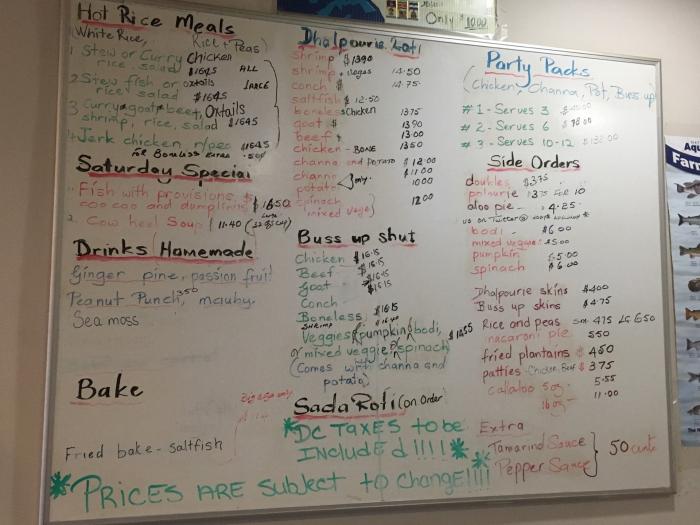 Only $10.00
Hot Rice Meals
(White Rice, Rice + Peas)
1 Stew or Curry Chicken
rice, salad $16.45 ALL
2 Stew fish or oxtails LARGE
rice salad $16.45
3 Curry goat beef, Oxtails
shrimp, rice, salad $16.45
4 Jerk chicken, r/peas 16.45
for Boneless extra .50¢
Saturday Special
1. Fish with provisions $
coo coo and dumplins $16.50
2. Cow heel Soup 11.40
Drinks Homemade
Ginger pine, passion fruit
Peanut Punch, 3.50 mauby.
Sea moss
Bake
Fried bake - saltfish
Dhalpourie Roti
Shrimp $13.90
shrimp + veggs 14.50
conch $ 14.75
saltfish $ 12.50
boneless chicken 13.75
goat $ 13.90
beef $ 13.00
chicken - BONE 13.50
channa and potato $12.00
channa $11.00
potato only. 10.00
spinach 12.00
(mixed vegs)
Buss up shut
Chicken $16.15
Beef $16.15
Goat $16.15
Conch $16.15
Boneless $16.15
SHRIMP
Veggies (pumpkin, bodi, $14.55
or mixed veggie, spinach)
(Comes with channa and
potato)
Sada Roti (on Order)
*DC TAXES to be
INCLUDEd !!!! *
*PRICES ARE SubJect to change!!!!
Party Packs
(Chicken, Channa, Pot, Buss up)
#1 - Serves 3
#2 - Serves 6 $
#3 - Serves 10-12 $
Side Orders
doubles $3.75
pohlourie $3.75 FOR 10
aloo pie - 4.25
us on Twitter@
bodi - $6.00
mixed veggie $5.00
pumpkin $5.00
spinach $6.00
Dhalpourie skins $4.00
Buss up skins $4.75
Rice and peas sm 4.75 LG 6.50
macaroni pie 5.50
fried plantains $ 4.50
patties - Chicken, Beef $ 3.75
callaloo 8oz - 5.55
16oz - 11.00
Extra
Tamarind Sauce
Pepper Sauce 50 cents
Aqu
Farm